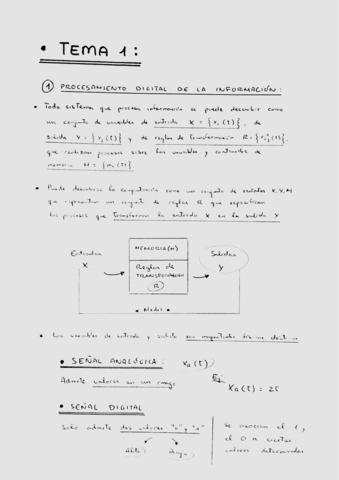 • TEMA 1:
① PROCESAMIENTO DIGITAL DE LA INFORMACIÓN:
• Todo sistema que procesa información se puede describir como
un conjunto de variables de entrada X = {x₁(t)}, de
salida Y = {y₁(t)} y de reglas de transformación R = {r₁(t)},
que realizan procesos sobre las variables y contenidos de
memoria M = {m₁(t)}.
• Puede describirse la computación como un conjunto de X, Y, M
que representan un conjunto de reglas R que especifican
los procesos que transforman la entrada X en la salida Y
MEMORIA(M)
Entradas
X
Reglas de
TRANSFORMACIÓN
(R)
Salidas
Y
Medio
• Las variables de entrada y salida son magnitudes
• SEÑAL ANALÓGICA: Xa(t)
Admite valores en un rango
Ej
Xa(t) = 2t
• SEÑAL DIGITAL
Solo admite dos valores: "0" y "1"
Alto Bajo
Se asocian el 1 y
el 0 a ciertos
valores determinados